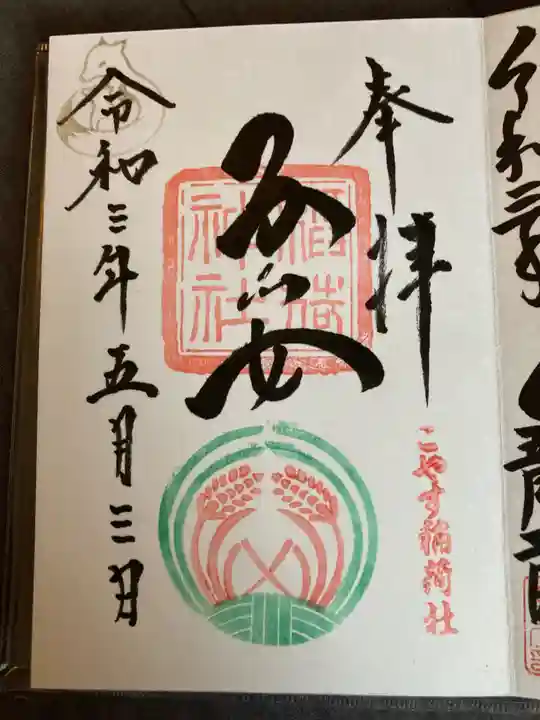 奉拝
子安
稲荷
神社
こやす稲荷社
令和三年五月三日